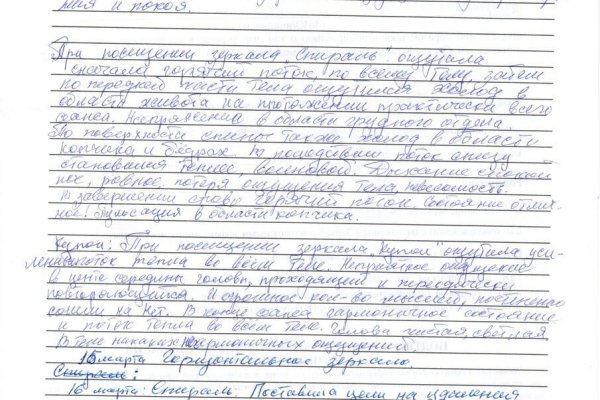 ния и покоя.
При посещении зеркала „Спираль" ощущала
сначала горячий поток, по всему телу, затем
по передней части тела ощущался холод в
области живота на протяжении практически всего
сеанса. Напряжение в области грудного отдела.
По поверхности спины также холод в области
копчика и бёдрах. В последствии поток снизу
становился теплее, волновой. Дыхание спокой
ное, ровное, потеря ощущения тела, невесомость.
В завершении снова горячий поток. Состояние отлич-
ное. Пульсация в области копчика.
Купол: При посещении зеркала „Купол" ощутила уси-
ление поток тепла во всём теле. Неприятное ощущение
в центре середины головы, проходящий и периодически
повторяющийся. И огромное кол-во мыслей, постепенно
сошли на нет. В конце сеанса гармоничное состояние
и поток тепла во всём теле. Голова чистая, светлая
В теле никаких негармоничных ощущений.
15 марта Горизонтальное зеркало.
Спираль:
16 марта: Спираль. Поставила цели на удаления